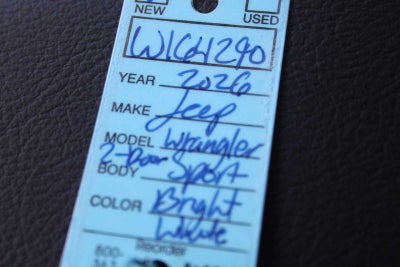 NEW USED
W164290
YEAR 2026
MAKE Jeep
MODEL Wrangler
2-Door
BODY Sport
COLOR Bright
White
Reorder
800-